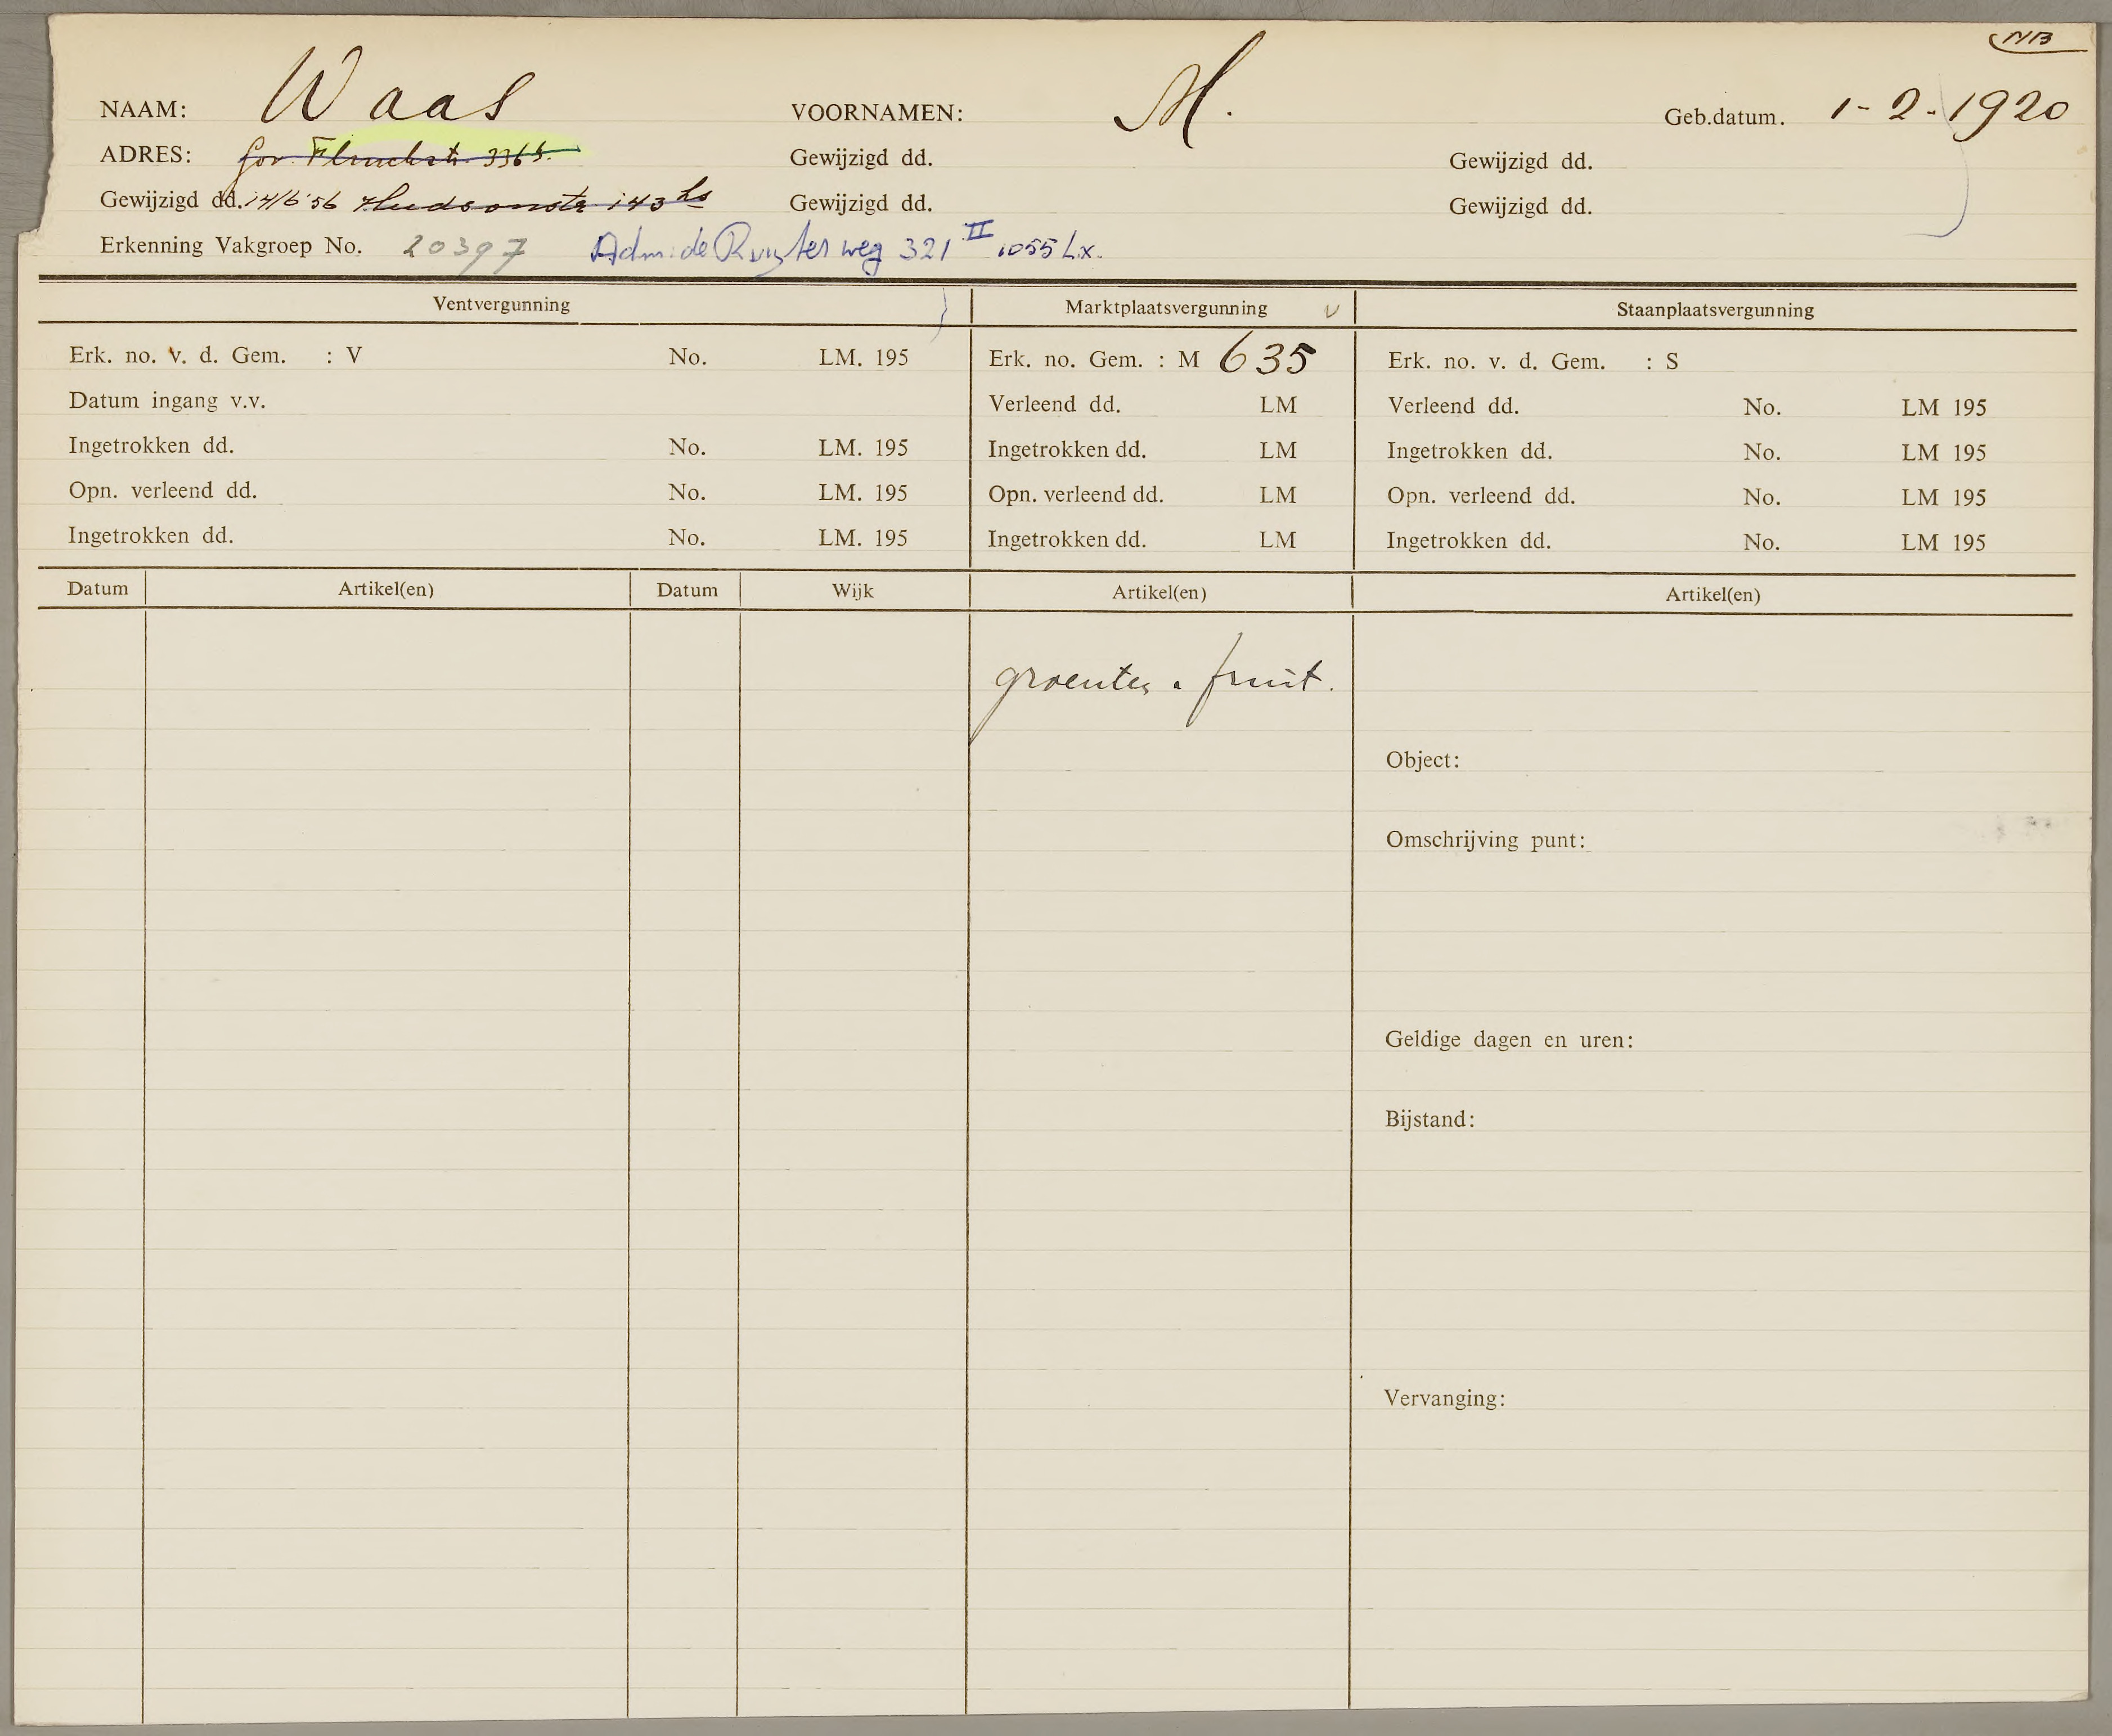 NB
NAAM: Waas VOORNAMEN: M. Geb.datum. 1-2-1920
ADRES: Gov. Flinckstr. 336 Gewijzigd dd. Gewijzigd dd.
Gewijzigd dd. 14/6'56 Hudsonstr 143 hs Gewijzigd dd. Gewijzigd dd.
Erkenning Vakgroep No. 20397 Adm. de Ruyterweg 321 II 1055 Lx.
Ventvergunning Marktplaatsvergunning v Staanplaatsvergunning
Erk. no. v. d. Gem. : V No. LM. 195 Erk. no. Gem. : M 635 Erk. no. v. d. Gem. : S
Datum ingang v.v. Verleend dd. LM Verleend dd. No. LM 195
Ingetrokken dd. No. LM. 195 Ingetrokken dd. LM Ingetrokken dd. No. LM 195
Opn. verleend dd. No. LM. 195 Opn. verleend dd. LM Opn. verleend dd. No. LM 195
Ingetrokken dd. No. LM. 195 Ingetrokken dd. LM Ingetrokken dd. No. LM 195
Datum Artikel(en) Datum Wijk Artikel(en) Artikel(en)
groenten . fruit.
Object:
Omschrijving punt:
Geldige dagen en uren:
Bijstand:
Vervanging: